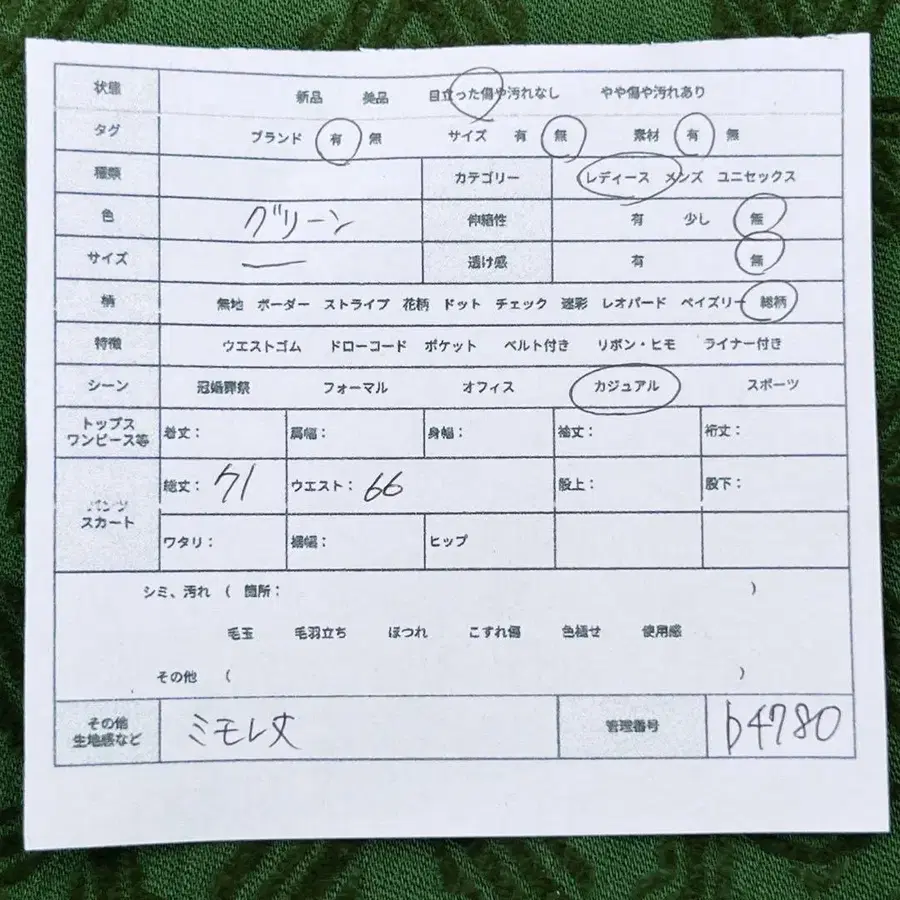 状態 新品 美品 目立った傷や汚れなし やや傷や汚れあり
タグ ブランド 有 無 サイズ 有 無 素材 有 無
種類 カテゴリー レディース メンズ ユニセックス
色 グリーン 伸縮性 有 少し 無
サイズ ー 透け感 有 無
柄 無地 ボーダー ストライプ 花柄 ドット チェック 迷彩 レオパード ペイズリー 総柄
特徴 ウエストゴム ドローコード ポケット ベルト付き リボン・ヒモ ライナー付き
シーン 冠婚葬祭 フォーマル オフィス カジュアル スポーツ
トップス
ワンピース等 着丈： 肩幅： 身幅： 袖丈： 裄丈：
パンツ
スカート 総丈：71 ウエスト：66 股上： 股下：
ワタリ： 裾幅： ヒップ
シミ、汚れ （ 箇所： ）
毛玉 毛羽立ち ほつれ こすれ傷 色褪せ 使用感
その他 （ ）
その他
生地感など ミモレ丈 管理番号 b4780